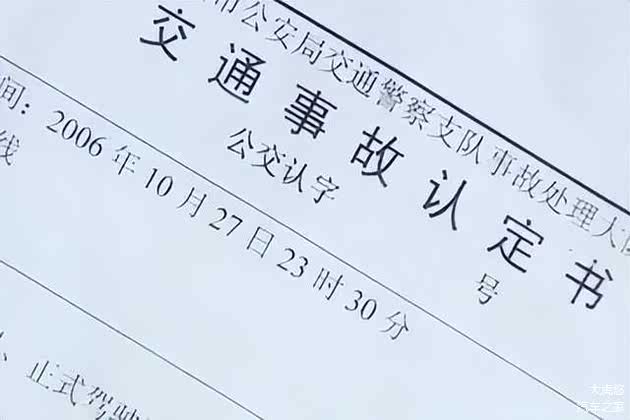 市公安局交通警察支队事故处理大队
交通事故认定书
公交认字 号
间：2006 年 10 月 27 日 23 时 30 分
线
、正式驾驶
汽车之家